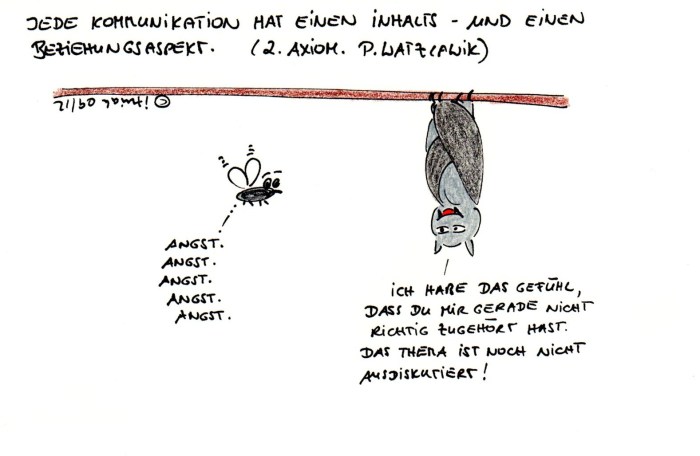 JEDE KOMMUNIKATION HAT EINEN INHALTS - UND EINEN
BEZIEHUNGSASPEKT. (2. AXIOM. P. WATZLAWIK)
© 09/12
ANGST.
ANGST.
ANGST.
ANGST.
ANGST.
ICH HABE DAS GEFÜHL,
DASS DU MIR GERADE NICHT
RICHTIG ZUGEHÖRT HAST.
DAS THEMA IST NOCH NICHT
AUSDISKUTIERT!